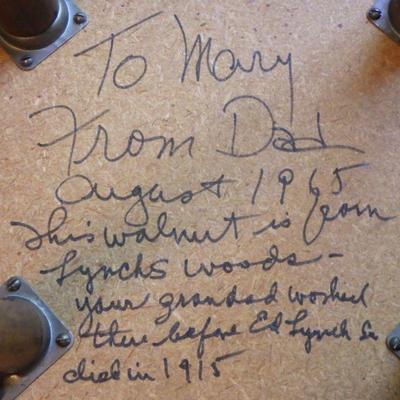 To Mary
From Dad
August 1965
This walnut is from
Lynchs woods -
your grandad worked
there before Ed Lynch Sr
died in 1915